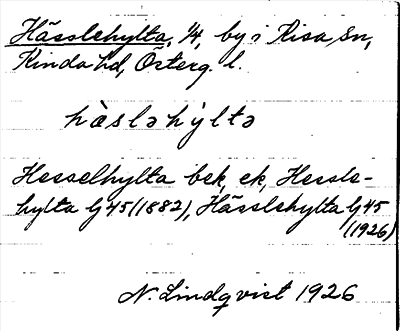 Hässlehylta, 1/4, by i Kisa sn,
Kinda hd, Österg. l.
hàsləhy̍ltə
Hesselhylta bek, ek, Hessle-
hylta G45 (1882), Hässlehylta G45
(1926)
N. Lindqvist 1926